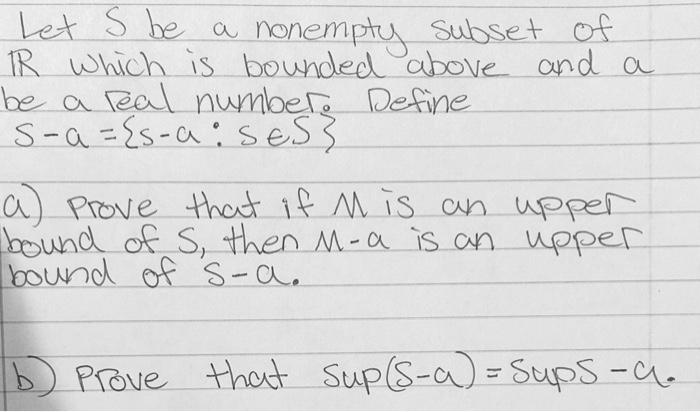 Let S be a nonempty subset of
ℝ which is bounded above and a
be a real number. Define
S-a = {s-a : s∈S}
a) Prove that if M is an upper
bound of S, then M-a is an upper
bound of S-a.
b) Prove that sup(S-a) = supS - a.